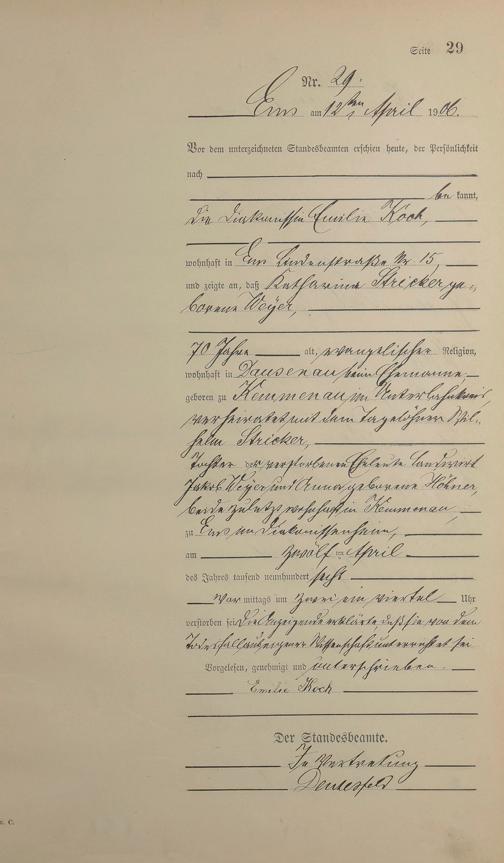 Seite 29
Nr. 29.
Ems am 12ten April 1906.
Vor dem unterzeichneten Standesbeamten erschien heute, der Persönlichkeit
nach
be kannt,
die Diakonissin Emilie Koch,
wohnhaft in Ems Lindenstraße Nr 15,
und zeigte an, daß Katharina Stricker ge-
borene Weyer,
70 Jahre alt, evangelischer Religion,
wohnhaft in Dausenau beim Ehemanne,
geboren zu Kemmenau im Unterlahnkreis,
verheiratet mit dem Tagelöhner Wil-
helm Stricker,
Tochter der verstorbenen Eheleute Landwirt
Jakob Weyer und Anna, geborene
beide zuletzt wohnhaft in Kemmenau,
zu Ems im Diakonissenheim,
am zwölften April
des Jahres tausend neunhundert sechs
Vor mittags um zwei ein viertel Uhr
verstorben sei. Die Anzeigende erklärte, daß sie von dem
Todesfall aus eigener Wissenschaft unterrichtet sei
Vorgelesen, genehmigt und unterschrieben.
Emilie Koch
Der Standesbeamte.
In Vertretung
C.